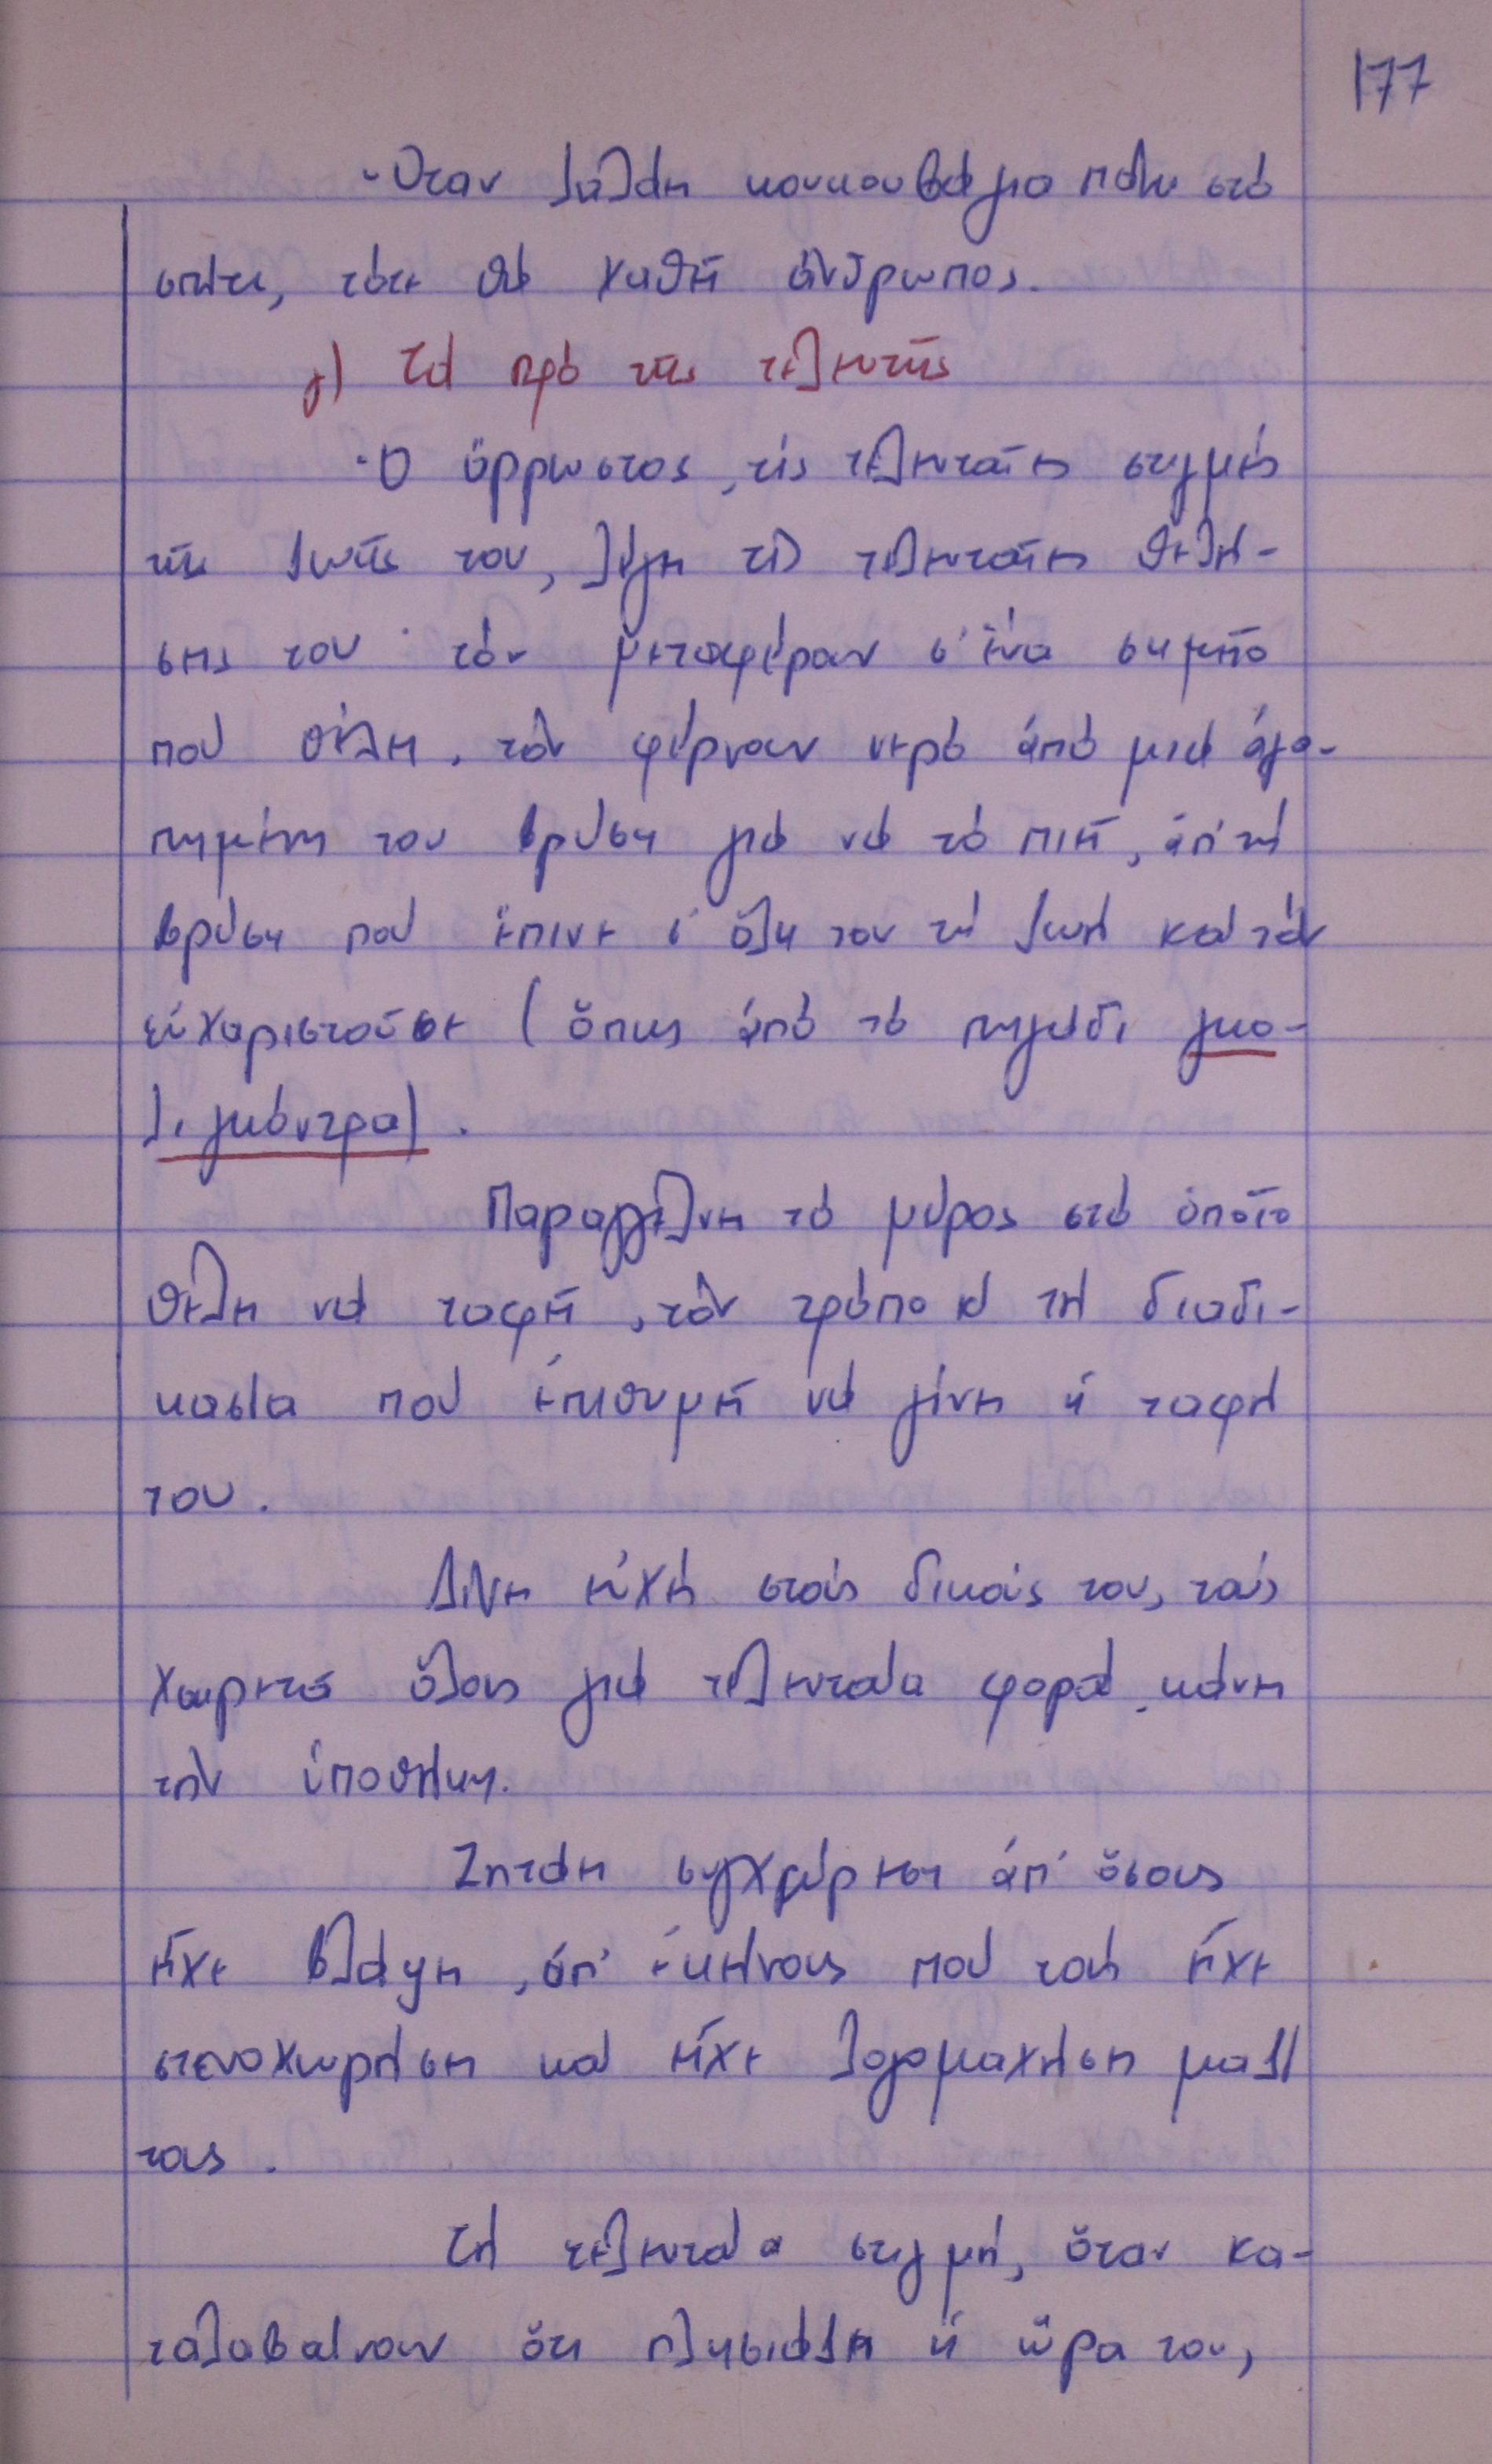 177
-Ὅταν λαλάει κουκουβάγια πάνω στό
σπίτι, τότε θά χαθεῖ ἄνθρωπος.
γ) Τά πρό τῆς τελευτῆς
-Ὁ ἄρρωστος, τίς τελευταῖες στιγμές
τῆς ζωῆς του, λέγει τίς τελευταῖες θελή-
σεις του· τόν μεταφέρουν σ' ἕνα σημεῖο
πού θέλει, τόν φέρνουν νερό ἀπό μιά ἀγα-
πημένη του βρύση γιά νά τό πιεῖ, ἀπ' τή
βρύση πού ἔπινε σ' ὅλη του τή ζωή καί τόν
εὐχαριστοῦσε (ὅπως ἀπό τό πηγάδι γκιο-
λι γκόντρα).
Παραγγέλνει τό μέρος στό ὁποῖο
θέλει νά ταφεῖ, τόν τρόπο κί τή διαδι-
κασία πού ἐπιθυμεῖ νά γίνει ἡ ταφή
του.
Δίνει εὐχή στούς δικούς του, τούς
χαιρετᾶ ὅλους γιά τελευταία φορά, κάνει
τήν ὑποθήκη.
Ζητάει συγχώρεση ἀπ' ὅσους
εἶχε βλάψει, ἀπ' ἐκείνους πού τούς εἶχε
στενοχωρήσει καί εἶχε λογομαχήσει μαζί
τους.
Τή τελευταία στιγμή, ὅταν κα-
ταλαβαίνουν ὅτι πλησιάζει ἡ ὥρα του,